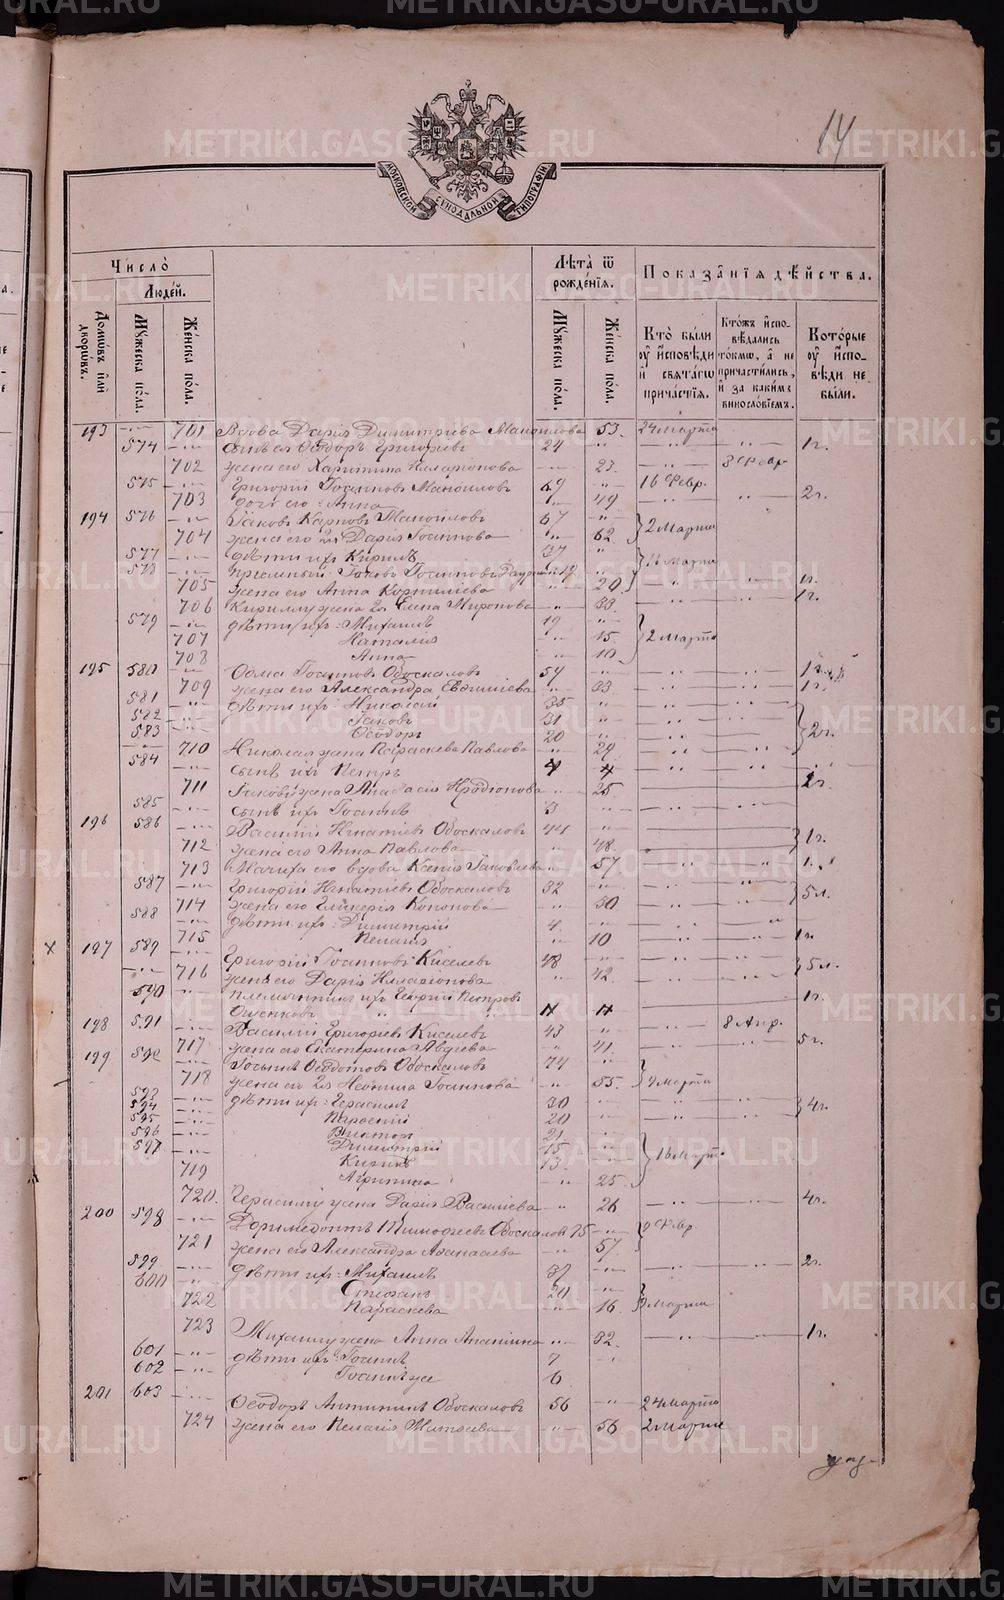 14
МОСКОВСКОЙ СѴНОДАЛЬНОЙ ТИПОГРАФІИ
Число̀ Лѣ́та ѿ рожде́нїѧ. Показа́нїѧ дѣ́йства.
Люде́й.
Домѡ́въ и҆лѝ дворѡ́въ. Мꙋ́жеска по́ла. Же́нска по́ла. Мꙋ́жеска по́ла. Же́нска по́ла. Кто̀ бы́ли оу҆ и҆сповѣ́ди и҆ свѧта́гѡ прича́стїѧ. Кто́жъ и҆сповѣ́дались то́кмѡ, а҆ не причасти́лись, и҆ за каки́мъ винослові́емъ. Кото́рые оу҆ и҆сповѣ́ди не бы́ли.
193 701 Вдова Дарія Димитріева Манойлова 53. 24 Марта
574 Сынъ ея Ѳеодоръ Григорьевъ 24 1 г.
702 жена его Харитина Илларіонова 23. 3 Февр
575 Григорій Іоанновъ Манойловъ 69 16 Февр.
703 дочь его: Анна 49 2 г.
194 576 Іаковъ Карповъ Манойловъ 67 2 Марта
704 жена его 2я Дарія Іоаннова 62
577 дѣти ихъ Кириллъ 37
578 пріемный Іаковъ Іоанновъ 19
705 жена его Анна Корнилієва 20. 1 г.
706 Кириллу жена 2я Елена Миронова 33. 1 г.
579 дѣти ихъ: Михаилъ 19
707 Наталія 15 2 Марта
708 Анна 10
195 580 Ѳома Іоанновъ Обоскаловъ 54
709 жена его Александра Евдокіева 33
581 дѣти ихъ: Николай 35
582 Іаковъ 31
583 Ѳеодоръ 20 2 г.
710 Николая жена Параскева Павлова 29
584 сынъ ихъ Петръ 4
711 Іакову жена Анастасія Иродіонова 25 2 г.
585 сынъ ихъ Іоаннъ 3
196 586 Василій Игнатіевъ Обоскаловъ 44
712 жена его Анна Павлова 48. 1 г.
713 Мачиха его вдова Ксенія Іаковлева 57
587 Григорій Игнатіевъ Обоскаловъ 32
714 жена его Гликерія Кононова 30 5 л.
588 дѣти ихъ: Димитрій 4
715 Пелагія 10
х 197 589 Григорій Іоанновъ Киселевъ 48 1 г.
716 жена его Дарія Илларіонова 42 5 л.
590 племянникъ ихъ Георгій Петровъ 1 г.
198 591 Василій Григоріевъ Киселевъ 43 8 Апр.
717 жена его Екатерина Авдіева 41. 5 г.
199 592 Ѳеодотовъ Обоскаловъ 74
718 жена его 2я Неонила Іоаннова 55. 9 Марта
593 дѣти ихъ: Герасимъ 30
594 20 4 г.
595 Викторъ 21
596 Димитрій 15
597 Кирикъ 13. 16 Марта
719 Агрипина 25
720. Герасиму жена Дарія Васильева 26 4 г.
200 598 Тимоѳеевъ Обоскаловъ 75 Февр.
721 жена его Александра Аѳанасьева 57.
599 дѣти ихъ: Михаилъ 37 2 г.
600 Стефанъ 20
722 Параскева 16 Марта
723 Михаилу жена Анна Ананьина 32. 1 г.
601 дѣти ихъ: Іоаннъ 7
602 Іоаннъ же 6
201 603 Ѳеодоръ Антипинъ Обоскаловъ 56 24 Марта
724 жена его Пелагія Матѳеева 56 2 Марта
METRIKI.GASO-URAL.RU